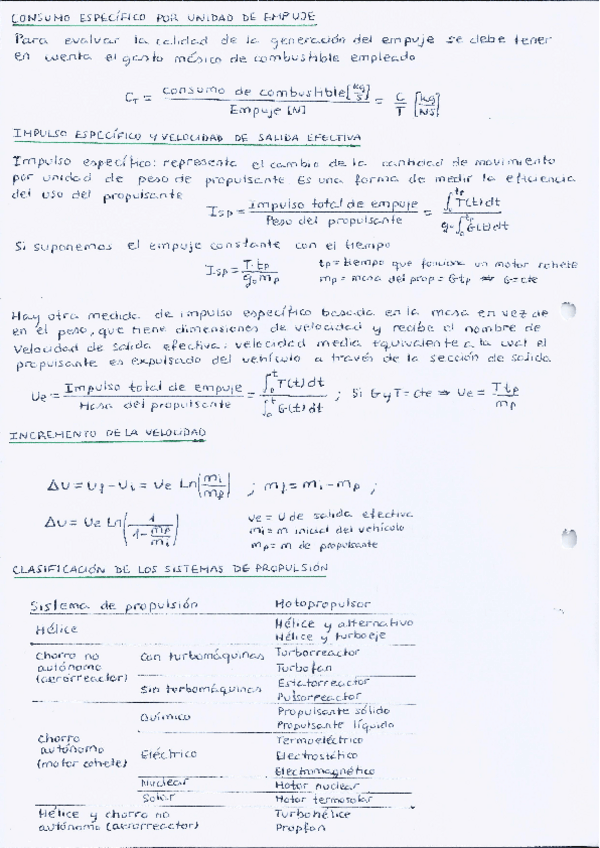 CONSUMO ESPECÍFICO POR UNIDAD DE EMPUJE
Para evaluar la calidad de la generación del empuje se debe tener
en cuenta el gasto másico de combustible empleado
C_T = consumo de combustible [kg/s] / Empuje [N] = C/T [kg/NS]
IMPULSO ESPECÍFICO Y VELOCIDAD DE SALIDA EFECTIVA
Impulso específico: representa el cambio de la cantidad de movimiento
por unidad de peso de propulsante Es una forma de medir la eficiencia
del uso del propulsante
I_sp = Impulso total de empuje / Peso del propulsante = ∫₀^tp T(t)dt / g₀∫₀^tp G(t)dt
Si suponemos el empuje constante con el tiempo
I_sp = T·tp / g₀mp
tp = tiempo que funciona un motor cohete
mp = masa del prop = G·tp ⇒ G=cte
Hay otra medida de impulso específico basada en la masa en vez de
en el peso, que tiene dimensiones de velocidad y recibe el nombre de
Velocidad de salida efectiva: velocidad media equivalente a la cual el
propulsante es expulsado del vehículo a través de la sección de salida
Ue = Impulso total de empuje / Masa del propulsante = ∫₀^t T(t)dt / ∫₀^t G(t)dt ; Si G y T = cte ⇒ Ue = T tp / mp
INCREMENTO DE LA VELOCIDAD
ΔU = Uf - Ui = Ue Ln(mi/mp) ; mf = mi - mp ;
ΔU = Ue Ln(1 / (1 - mp/mi))
ve = U de salida efectiva
mi = m inicial del vehículo
mp = m de propulsante
CLASIFICACIÓN DE LOS SISTEMAS DE PROPULSIÓN
Sistema de propulsión Motopropulsor
Hélice Hélice y alternativo
Hélice y turboeje
Chorro no autónomo (aerorreactor) Con turbomáquinas Turborreactor
Turbofan
Sin turbomáquinas Estatorreactor
Pulsorreactor
Chorro autónomo (motor cohete) Químico Propulsante sólido
Propulsante líquido
Eléctrico Termoeléctrico
Electrostático
Electromagnético
Nuclear Motor nuclear
Solar Motor termosolar
Hélice y chorro no autónomo (aerorreactor) Turbohélice
Propfan